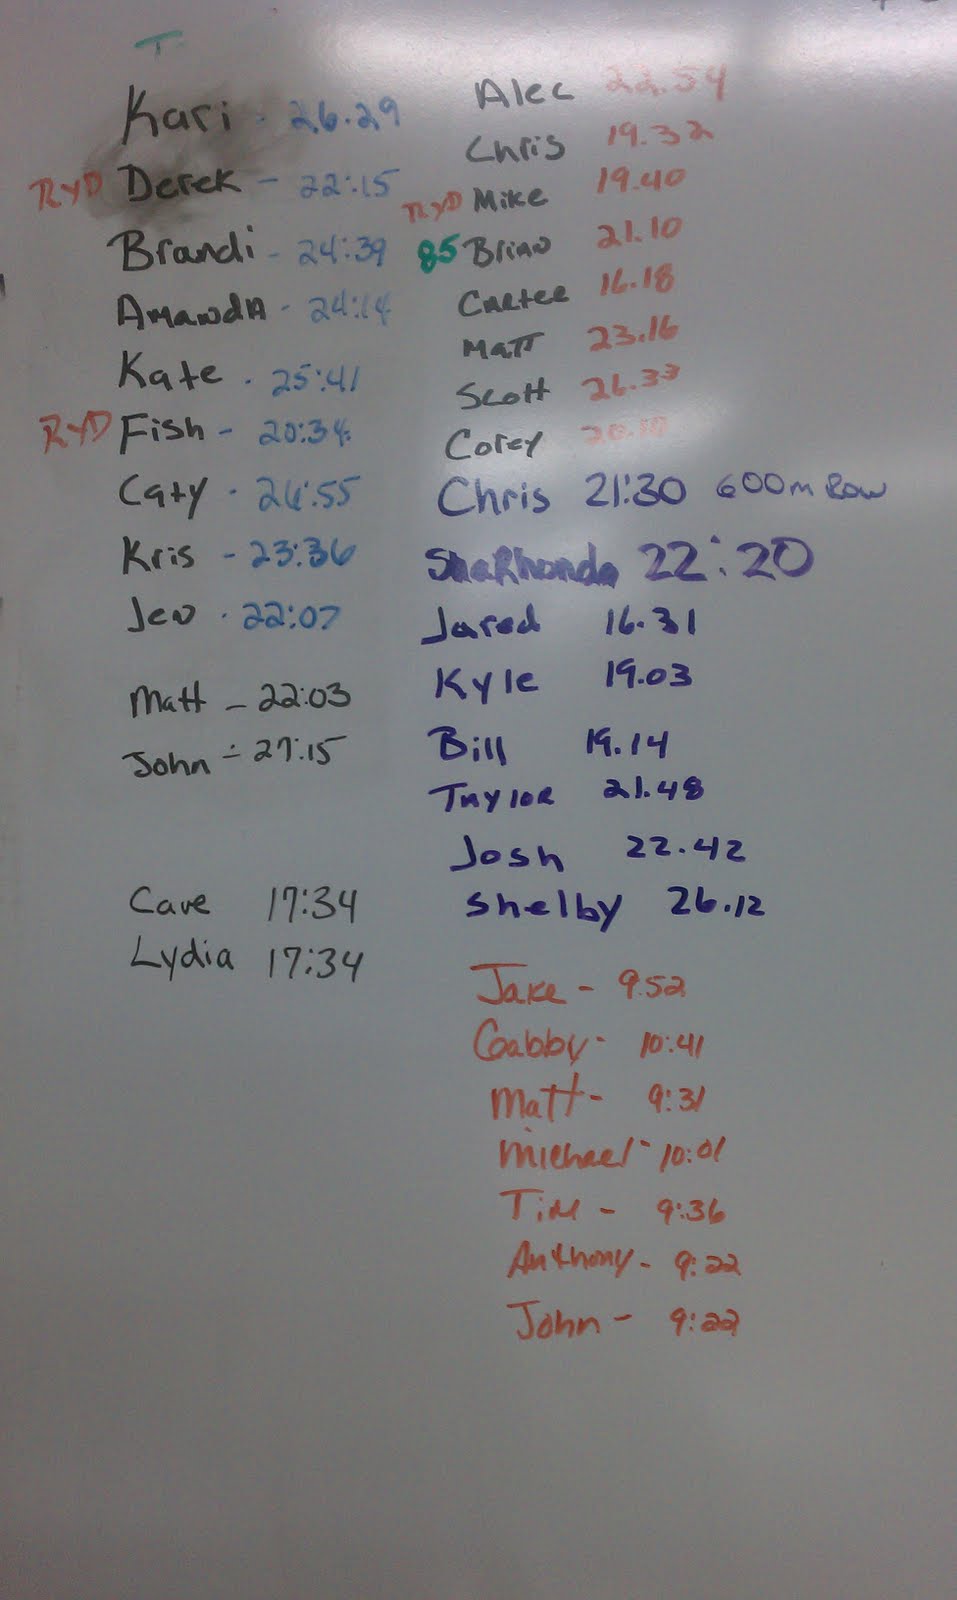 T
Kari - 26.29
RYD Derek - 22:15
Brandi - 24:39
AmandA - 24:14
Kate - 25:41
RYD Fish - 20:34
Caty - 26:55
Kris - 23:36
Jen - 22:07
Matt - 22:03
John - 27:15
Cave 17:34
Lydia 17:34
Alec 22.54
Chris 19.32
RYD Mike 19.40
85 Brian 21.10
Carter 16.18
Matt 23.16
Scott 26.33
Corey
Chris 21:30 600m Row
ShaRhonda 22:20
Jared 16.31
Kyle 19.03
Bill 19.14
Taylor 21.48
Josh 22.42
Shelby 26.12
Jake - 9:52
Gabby - 10:41
Matt - 9:31
Michael - 10:01
Tim - 9:36
Anthony - 9:22
John - 9:22